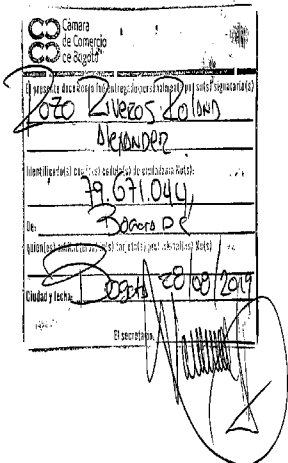 Cámara
de Comercio
de Bogotá
El presente documento fue entregado personalmente por su(s) signatario(s)
Pozo Riveros Roland
Alexander
Identificado(s) con la(s) cédula(s) de ciudadanía No(s).
79.671.044
De:
Bogotá DC
Ciudad y fecha:
Bogotá 28/08/2019
El secretario